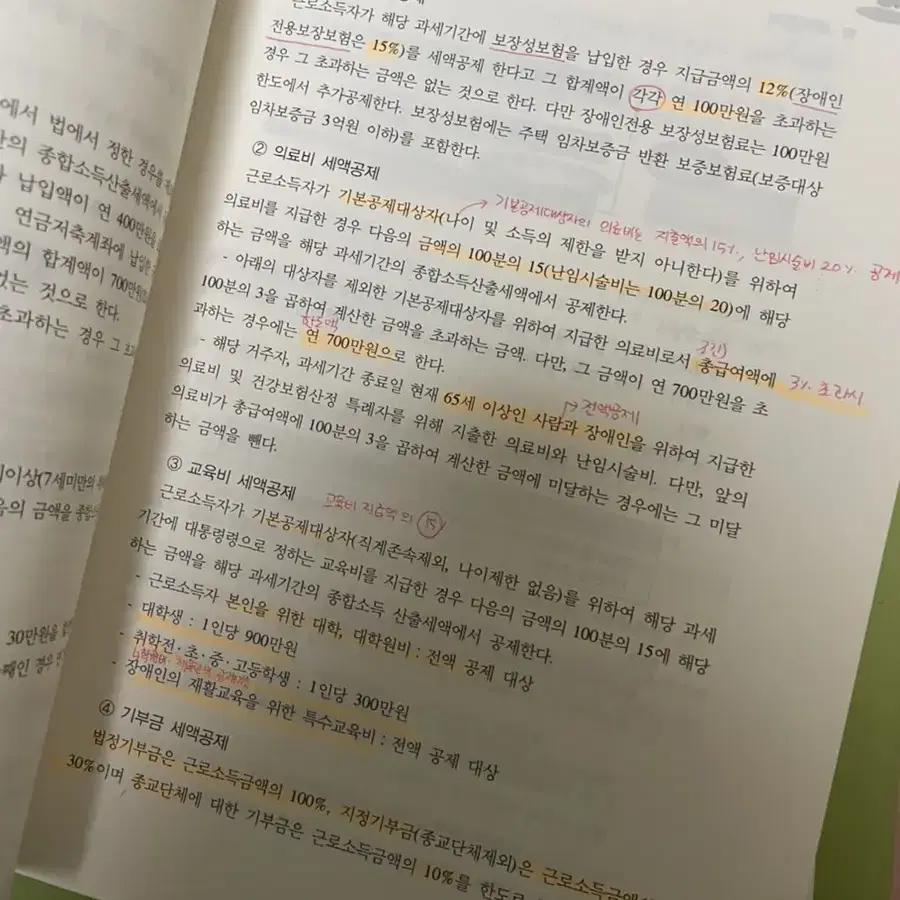 근로소득자가 해당 과세기간에 보장성보험을 납입한 경우 지급금액의 12%(장애인
전용보장보험은 15%)를 세액공제 한다고 그 합계액이 각각 연 100만원을 초과하는
경우 그 초과하는 금액은 없는 것으로 한다. 다만 장애인전용 보장성보험료는 100만원
한도에서 추가공제한다. 보장성보험에는 주택 임차보증금 반환 보증보험료(보증대상
임차보증금 3억원 이하)를 포함한다.
② 의료비 세액공제
기본공제대상자의 의료비는 지출액의 15%, 난임시술비 20% 공제
근로소득자가 기본공제대상자(나이 및 소득의 제한을 받지 아니한다)를 위하여
의료비를 지급한 경우 다음의 금액의 100분의 15(난임시술비는 100분의 20)에 해당
하는 금액을 해당 과세기간의 종합소득산출세액에서 공제한다.
- 아래의 대상자를 제외한 기본공제대상자를 위하여 지급한 의료비로서 총급여액에
3% 초과시
100분의 3을 곱하여 계산한 금액을 초과하는 금액. 다만, 그 금액이 연 700만원을 초
한도액
과하는 경우에는 연 700만원으로 한다.
→ 전액공제
- 해당 거주자, 과세기간 종료일 현재 65세 이상인 사람과 장애인을 위하여 지급한
의료비 및 건강보험산정 특례자를 위해 지출한 의료비와 난임시술비. 다만, 앞의
의료비가 총급여액에 100분의 3을 곱하여 계산한 금액에 미달하는 경우에는 그 미달
하는 금액을 뺀다.
③ 교육비 세액공제
교육비 지출액의 15%
근로소득자가 기본공제대상자(직계존속제외, 나이제한 없음)를 위하여 해당 과세
기간에 대통령령으로 정하는 교육비를 지급한 경우 다음의 금액의 100분의 15에 해당
하는 금액을 해당 과세기간의 종합소득 산출세액에서 공제한다.
- 근로소득자 본인을 위한 대학, 대학원비 : 전액 공제 대상
- 대학생 : 1인당 900만원
- 취학전·초·중·고등학생 : 1인당 300만원
- 장애인의 재활교육을 위한 특수교육비 : 전액 공제 대상
④ 기부금 세액공제
법정기부금은 근로소득금액의 100%, 지정기부금(종교단체제외)은 근로소득금액의
30%이며 종교단체에 대한 기부금은 근로소득금액의 10%를 한도로
에서 법에서 정한 경우를
의 종합소득산출세액에서
납입액이 연 400만원을
연금저축계좌에 납입한
액의 합계액이 700만원
없는 것으로 한다.
초과하는 경우 그 초과
이상(7세미만의
음의 금액을 종합소
30만원을
경우